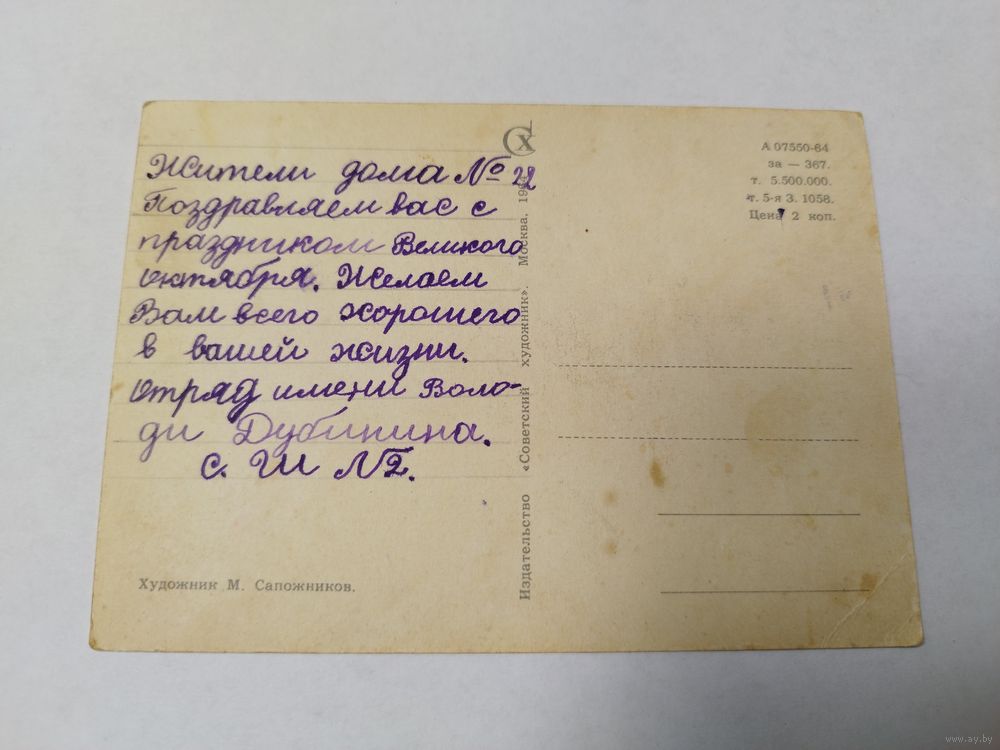 Жители дома № 22
Поздравляем вас с
праздником Великого
октября. Желаем
Вам всего хорошего
в вашей жизни.
отряд имени Воло-
ди Дубинина.
С. Ш №2.
Художник М. Сапожников.
Издательство «Советский художник». Москва, 1964
СХ
А 07550-64
за — 367.
т. 5.500.000.
т. 5-я З. 1058.
Цена 2 коп.
www.ay.by